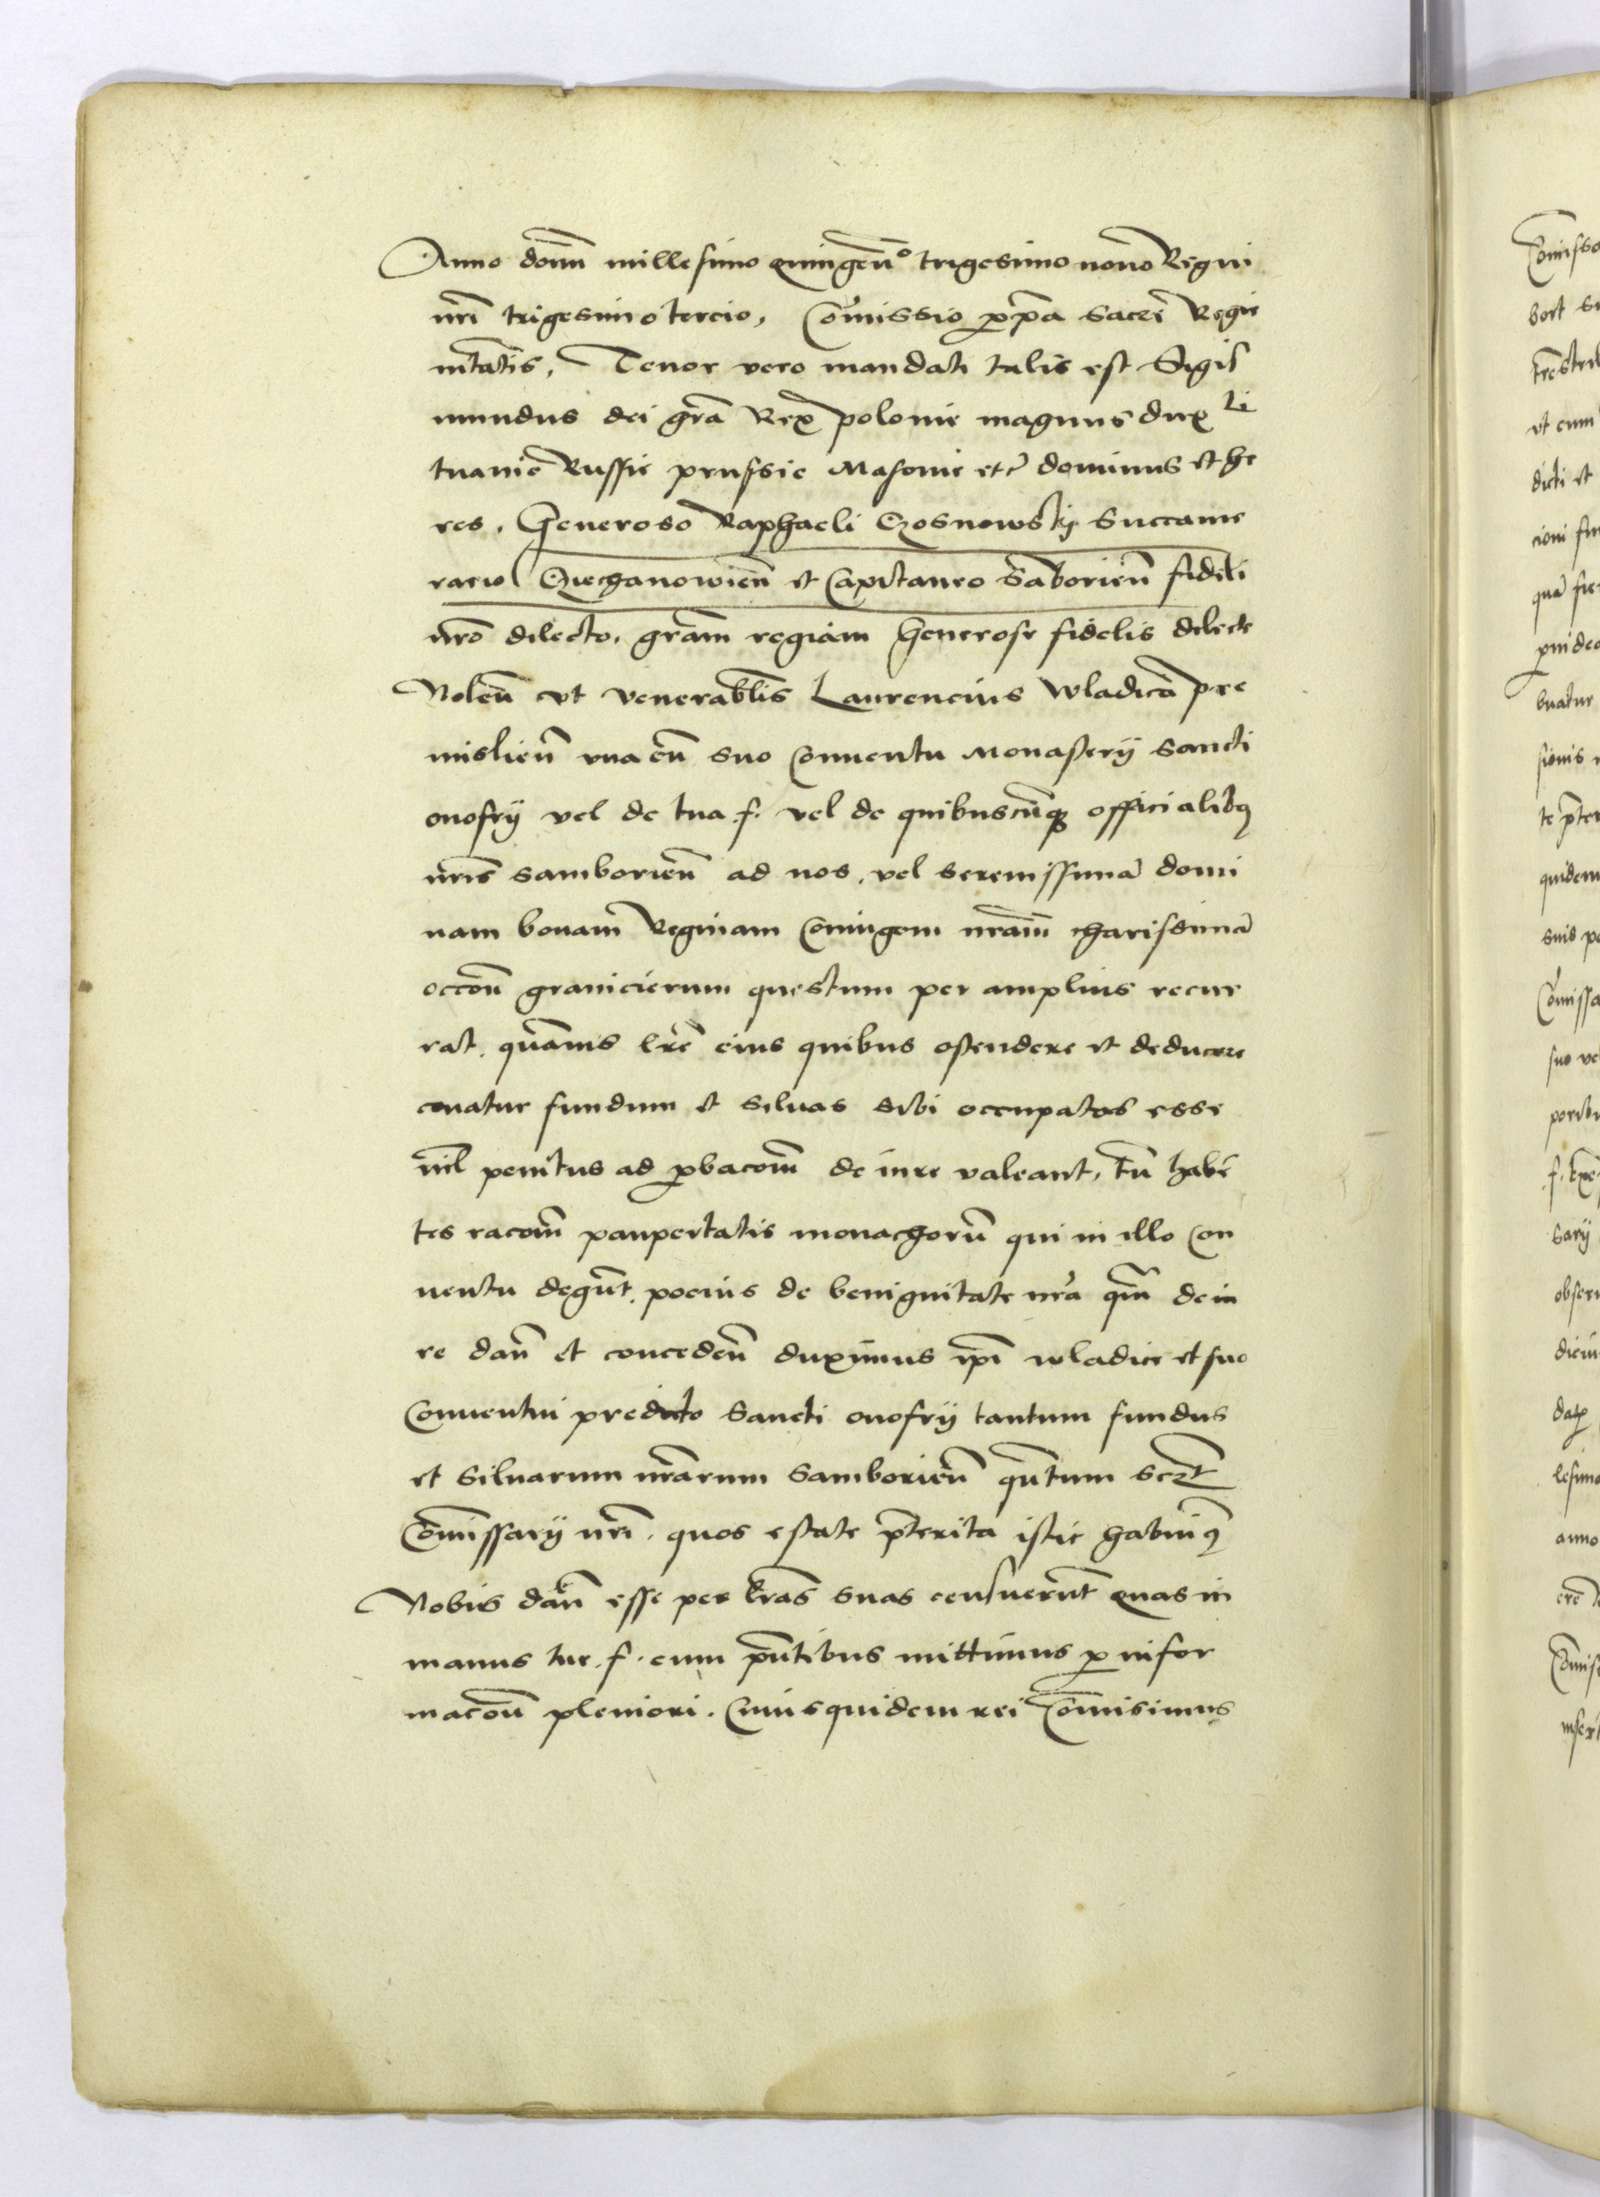 Anno domī millesimo quingeñº trigesimo nono Regni
nrī trigesimo tercio, Comissio p̱pa Sacre Regie
mtatis, Tenor vero mandati talis est Sigis
mundus dei gra Rex polonie magnus dux Li
tuanie Russie prussie Masouie etc dominus et he
res. Generoso Raphaeli Czosnowskj Succame
rario Cieczanowień et Capitaneo Saborień fideli
nrō dilecto. gram regiam Generose fidelis dilecte
Noleñ vt venerablis Laurencius Wladica pre
mislień vna cū suo Conuentu Monasterij Sancti
onofrij vel de tua f. vel de quibuscūq officialibꝫ
nrīs samborień ad nos, vel serenissimā domi
nam bonam Reginam Coniugem nrām charissimā
occoñ granicierum questum per amplius recur
rat. quamuis lrē eius quibus ostendere et deducere
conatur fundum et siluas sibi occupatos esse
nil penitus ad p̱bacom̄ de iure valeant, tn̄ habē
tes racom̄ paupertatis monachorū qui in illo Con
uentu degūt, pocius de benignitate nrā qm̄ de iu
re dañ et concedeñ duximus ipi wladice et suo
Conuentui predicto Sancti onofrij tantum fundus
et Siluarum nrārum Samborień qūtum
Comissarij nrī. quos estate p̄terita istic habuimꝫ
Nobis dañ esse per lrās suas censuerūt quas in
manus tue .f. cum pn̄tibus mittimus p̱ infor
macoñ pleniori. Cuiusquidem rei Comisimus
Comisso
bort
vt cum
dicti et
cioni
quā
buatur
sionis
quidem
suis
suo
sary
anno